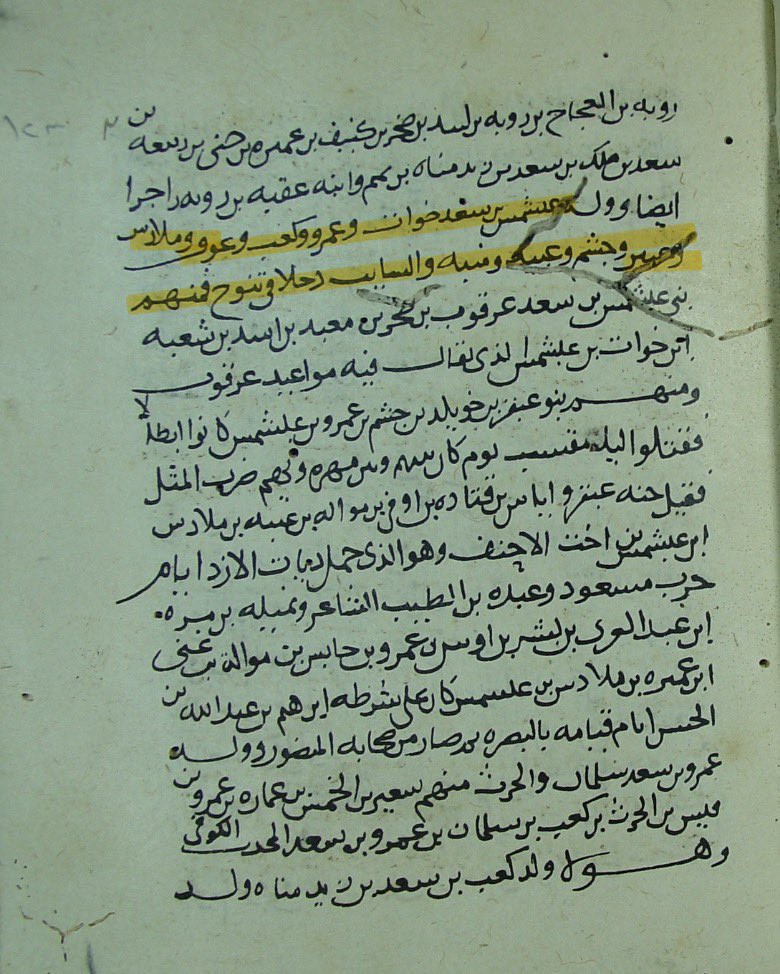 روبه بن العجاج بن روبه بن لبيد بن صخر بن كنيف بن عميره بن حنى بن ربيعه بن
سعد بن ملك بن سعد بن زيد مناه بن تميم وابنه عقبه بن روبه راجزا
ايضا وولد عبشمس بن سعد خوات وعمرو وكعب وعوف وملادس
وعمير وجشم وعبيد ومنبه والسايب دخلا في تنوخ فمنهم
بنى عبشمس بن سعد عرقوب بن صخر بن معبد بن اسد بن شعبه
ابن خوات بن عبشمس الذى يقال فيه مواعيد عرقوب
ومنهم بنو عنبر بن خويلد بن جشم بن عمرو بن عبشمس كانوا ابطالا
فقتلوا ليله يوم كان بينهم وبين مهره وبهم ضرب المثل
فقيل واياس بن قتاده بن اوفى بن مواله بن عتبه بن ملادس
ابن عبشمس بن اخت الاحنف وهو الذى حمل ديات الازد ايام
حرب مسعود وعبده بن الطبيب الشاعر ونميله بن مره
ابن عبد العزى بن بشر بن اوس بن عمرو بن حابس بن موالة بن
ابن عميره بن ملادس بن عبشمس كان على شرطه ابرهيم بن عبد الله بن
الحسن ايام قيامه بالبصره ثم صار من صحابه المنصور وولد
عمرو بن سعد سلمان والحرث منهم سعير بن الخمس بن عماره بن عمرو بن
قيس بن الحرث بن كعب بن سلمان بن عمرو بن سعد المحدث الكوفى
وهولا ولد كعب بن سعد بن زيد مناه ولد